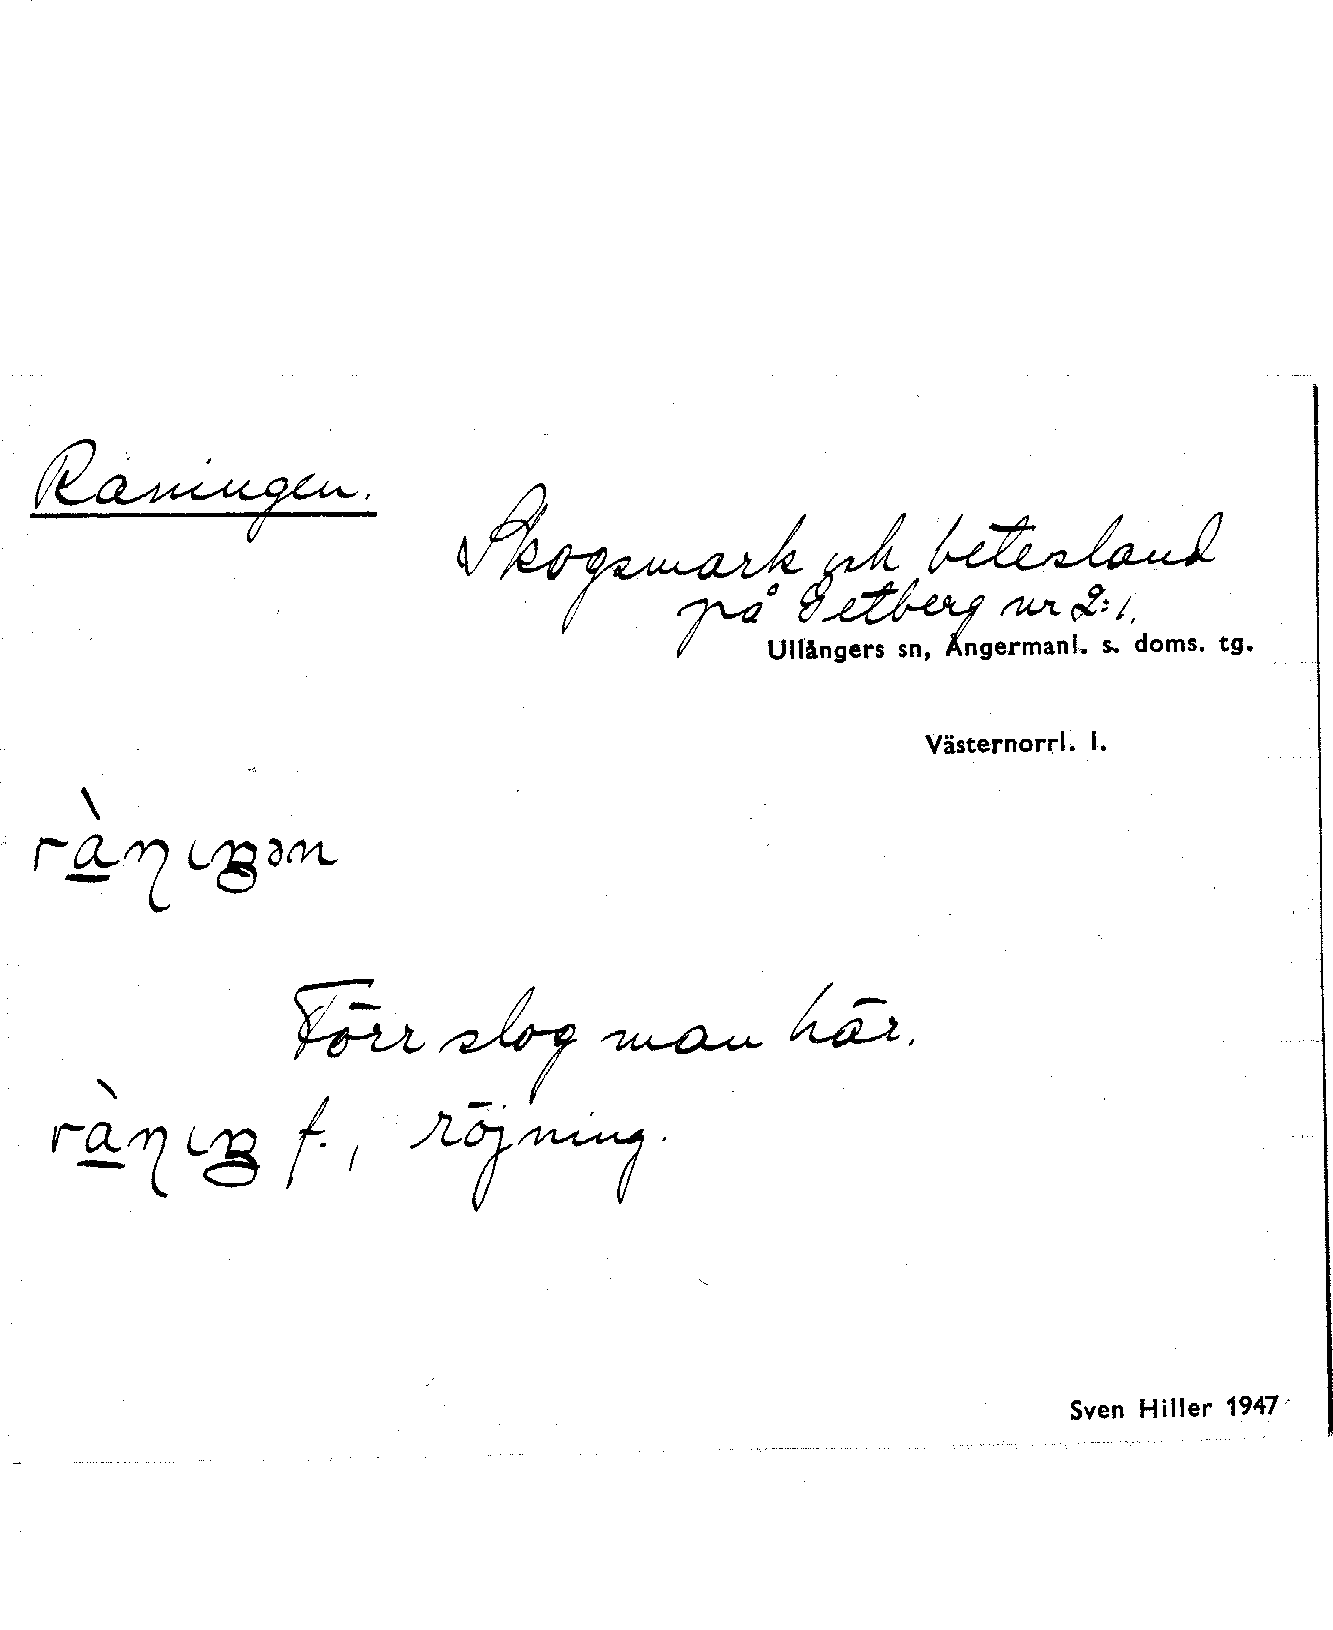 Råningen.
Skogsmark och betesland
på Getberg nr 2:1.
Ullångers sn, Ångermanl. s. doms. tg.
Västernorrl. l.
Förr slog man här.
f., röjning.
Sven Hiller 1947